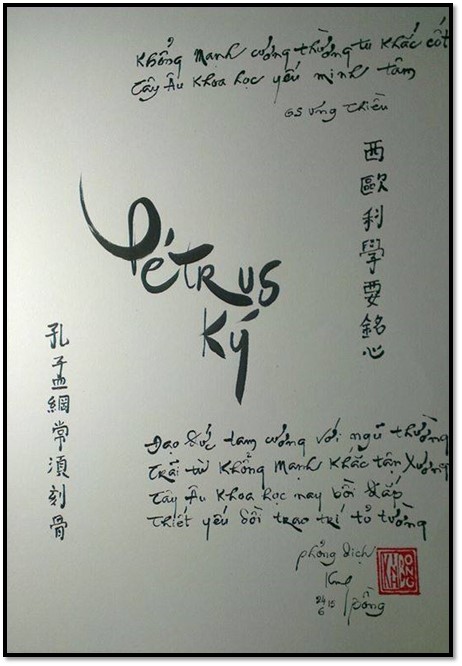 Khổng Mạnh cương thường tu khắc cốt
Tây Âu khoa học yếu minh tâm
GS Ưng Thiều
西歐科學要銘心
Pétrus
Ký
孔孟綱常須刻骨
Đạo Đức tam cương với ngũ thường
Trải từ Khổng Mạnh khắc tận xương
Tây Âu khoa học nay bồi đắp
Thiết yếu dồi trao trí tỏ tường
phỏng dịch